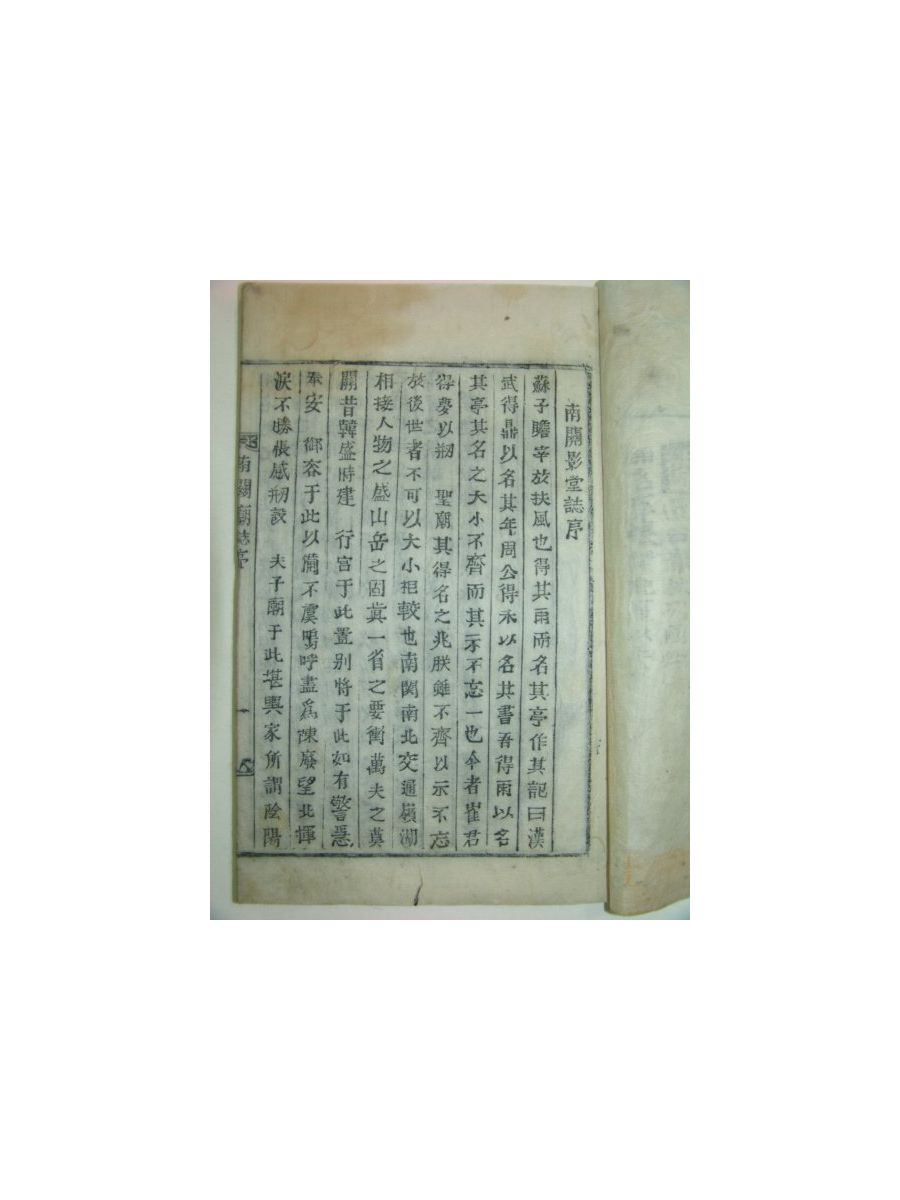 南關影堂誌序
蘇子瞻宰於扶風也得其雨而名其亭作其記曰漢
武得鼎以名其年周公得禾以名其書吾得雨以名
其亭其名之大小不齊而其示不忘一也今者崔君
得夢以刱 聖廟其得名之兆朕雖不齊以示不忘
於後世者不可以大小相較也南関南北交通嶺湖
相接人物之盛山岳之固眞一省之要衝萬夫之莫
關昔韓盛時建 行宫于此置别將于此如有警急
奉安 御容于此以備不虞嗚呼盡爲陳廢望北揮
淚不勝悵感刱設 夫子廟于此堪輿家所謂陰陽
南關廟誌序
一